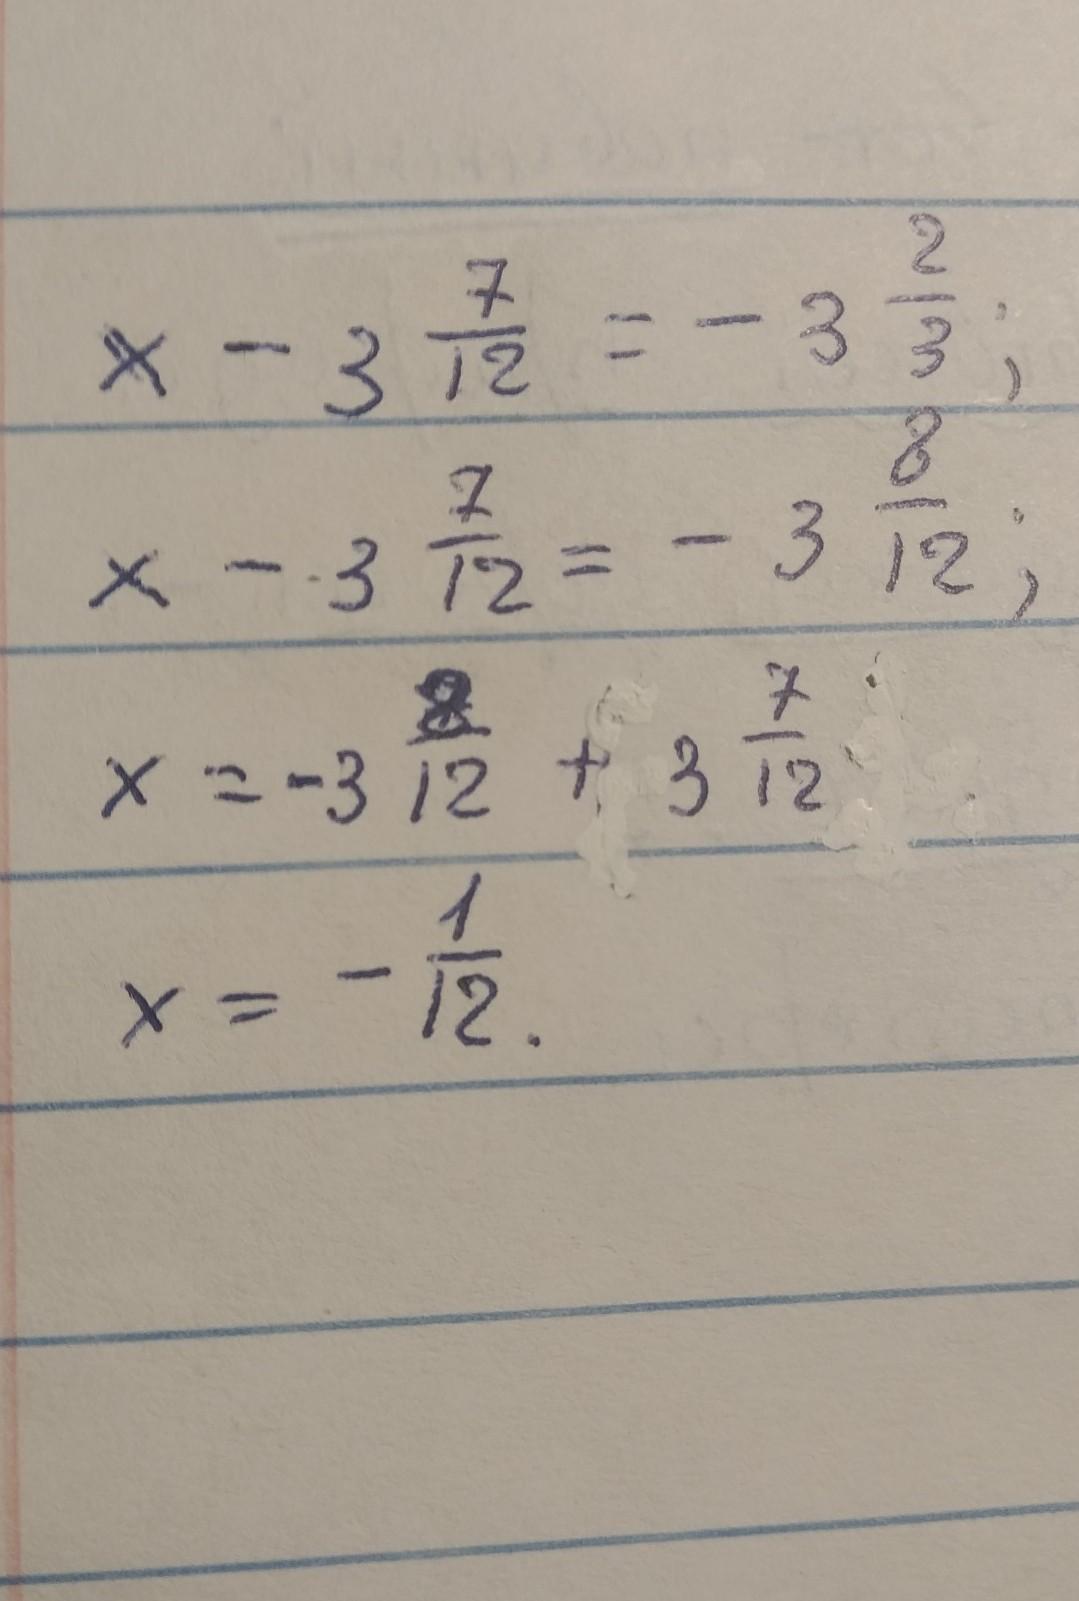 x - 3 7/12 = - 3 2/3;
x - 3 7/12 = - 3 8/12;
x = -3 8/12 + 3 7/12
x = - 1/12.